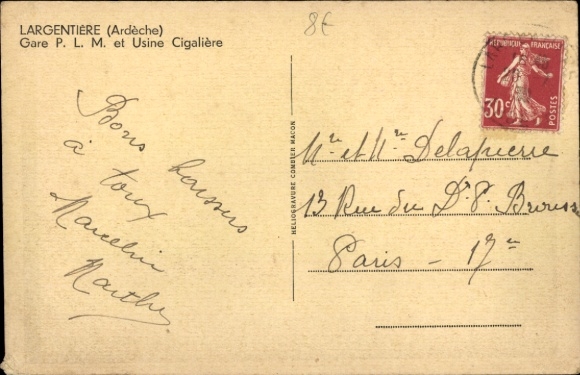 LARGENTIÈRE (Ardèche)
Gare P. L. M. et Usine Cigalière
8€
RÉPUBLIQUE FRANÇAISE
30c
POSTES
Bons baisers
à tous
Marcelin
Marthe
HÉLIOGRAVURE COMBIER MACON
Mr et Mme Delapierre
13 Rue du Dr P. Brousse
Paris - 17e